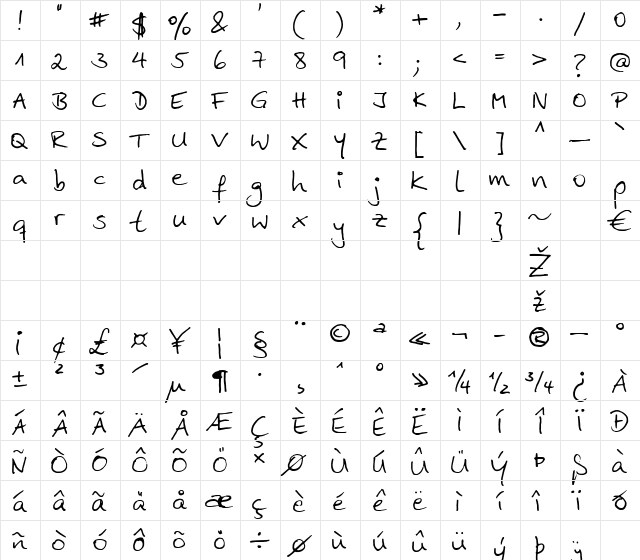 ! " # $ % & ' ( ) * + , - . / 0
1 2 3 4 5 6 7 8 9 : ; < = > ? @
A B C D E F G H I J K L M N O P
Q R S T U V W X Y Z [ \ ] ^ _ `
a b c d e f g h i j k l m n o p
q r s t u v w x y z { | } ~ €
Ž
ž
¡ ¢ £ ¤ ¥ ¦ § ¨ © ª « ¬ - ® ¯ °
± ² ³ ´ µ ¶ · ¸ ¹ º » ¼ ½ ¾ ¿ À
Á Â Ã Ä Å Æ Ç È É Ê Ë Ì Í Î Ï Ð
Ñ Ò Ó Ô Õ Ö × Ø Ù Ú Û Ü Ý Þ à
á â ã ä å æ ç è é ê ë ì í î ï ð
ñ ò ó ô õ ö ÷ ø ù ú û ü ý þ ÿ